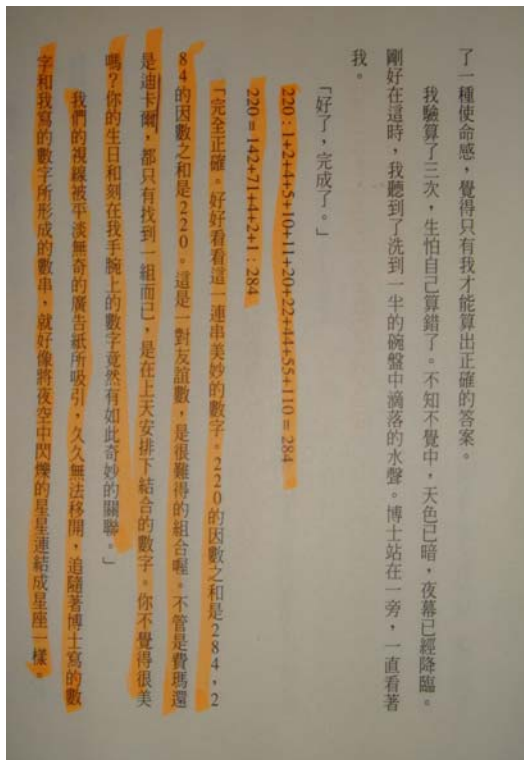 了一種使命感，覺得只有我才能算出正確的答案。
我驗算了三次，生怕自己算錯了。不知不覺中，天色已暗，夜幕已經降臨。
剛好在這時，我聽到了洗到一半的碗盤中滴落的水聲。博士站在一旁，一直看著
我。
「好了，完成了。」
220：1+2+4+5+10+11+20+22+44+55+110＝284
220＝142+71+4+2+1：284
「完全正確。好好看看這一連串美妙的數字。220的因數之和是284，2
84的因數之和是220。這是一對友誼數，是很難得的組合喔。不管是費瑪還
是迪卡爾，都只有找到一組而已，是在上天安排下結合的數字。你不覺得很美
嗎？你的生日和刻在我手腕上的數字竟然有如此奇妙的關聯。」
我們的視線被平淡無奇的廣告紙所吸引，久久無法移開，追隨著博士寫的數
字和我寫的數字所形成的數串，就好像將夜空中閃爍的星星連結成星座一樣。